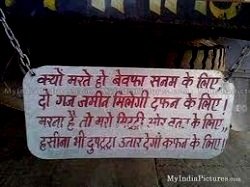 क्यों मरते हो बेवफा सनम के लिए,
दो गज जमीन मिलेगी दफन के लिए।
मरना है तो मरो मिट्टी और वतन के लिए,
हसीना भी दुपट्टा उतार देगी कफन के लिए।
MyIndiaPictures.com